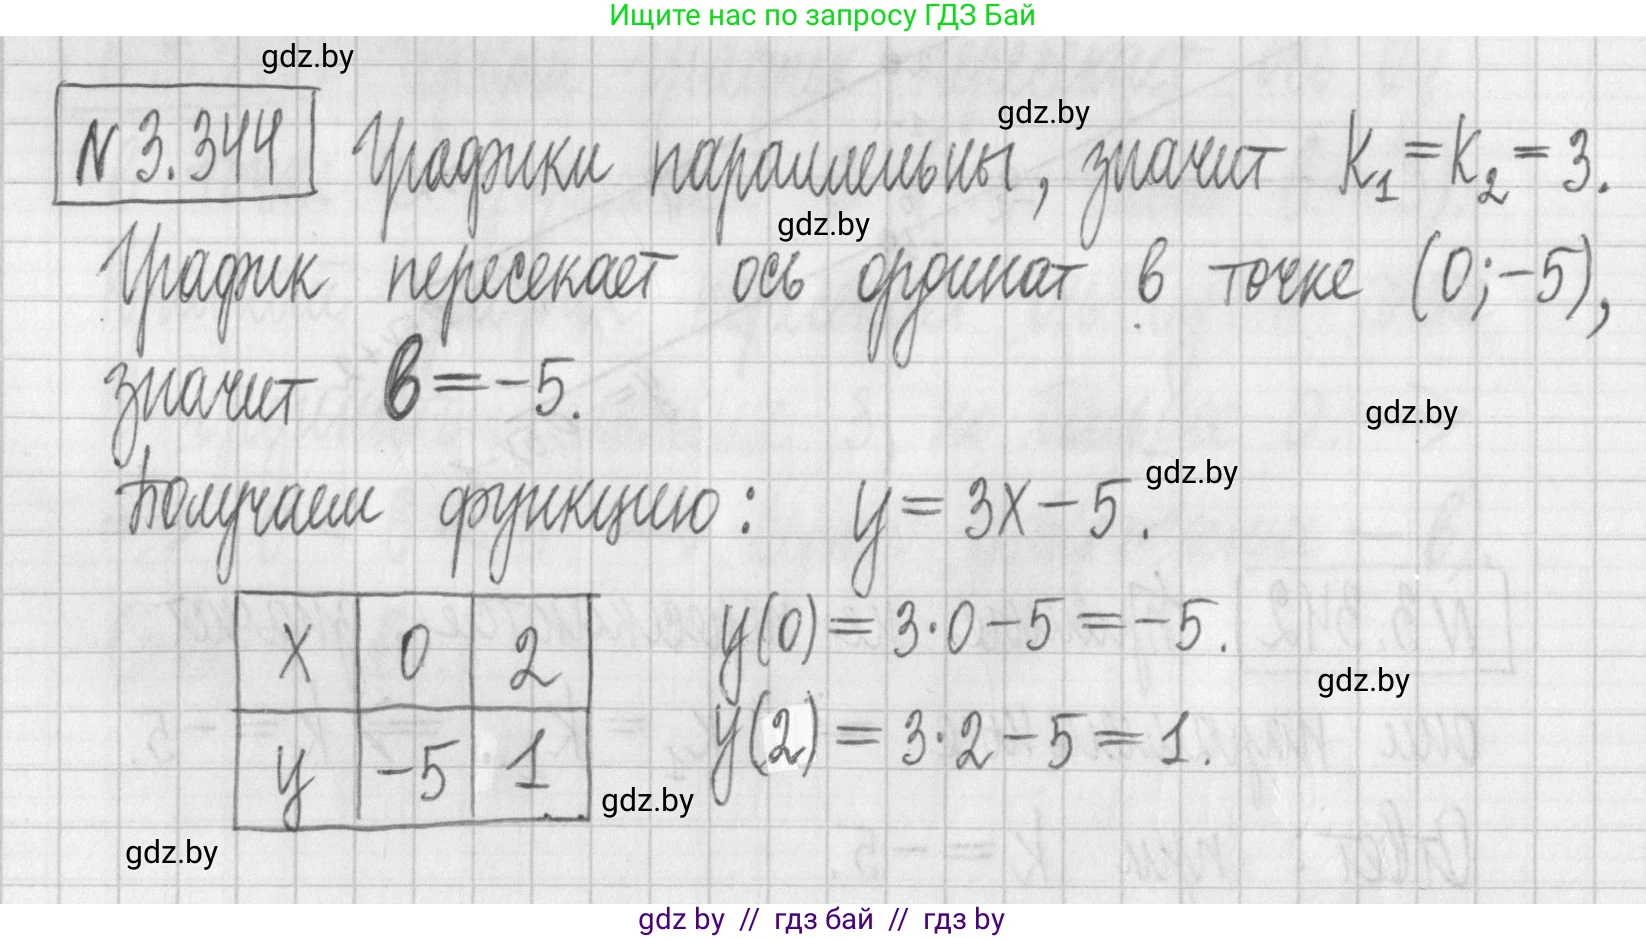 Ищите нас по запросу ГДЗ Бай
gdz.by
gdz.by
N 3.344 Графики параллельны, значит K₁ = K₂ = 3.
gdz.by
График пересекает ось ординат в точке (0; -5),
значит в = -5.
gdz.by
gdz.by
Получаем функцию: y = 3x - 5.
x 0 2 y(0) = 3·0 - 5 = -5.
gdz.by
y -5 1 y(2) = 3·2 - 5 = 1.
gdz.by
gdz.by
gdz by // гдз бай // гдз by